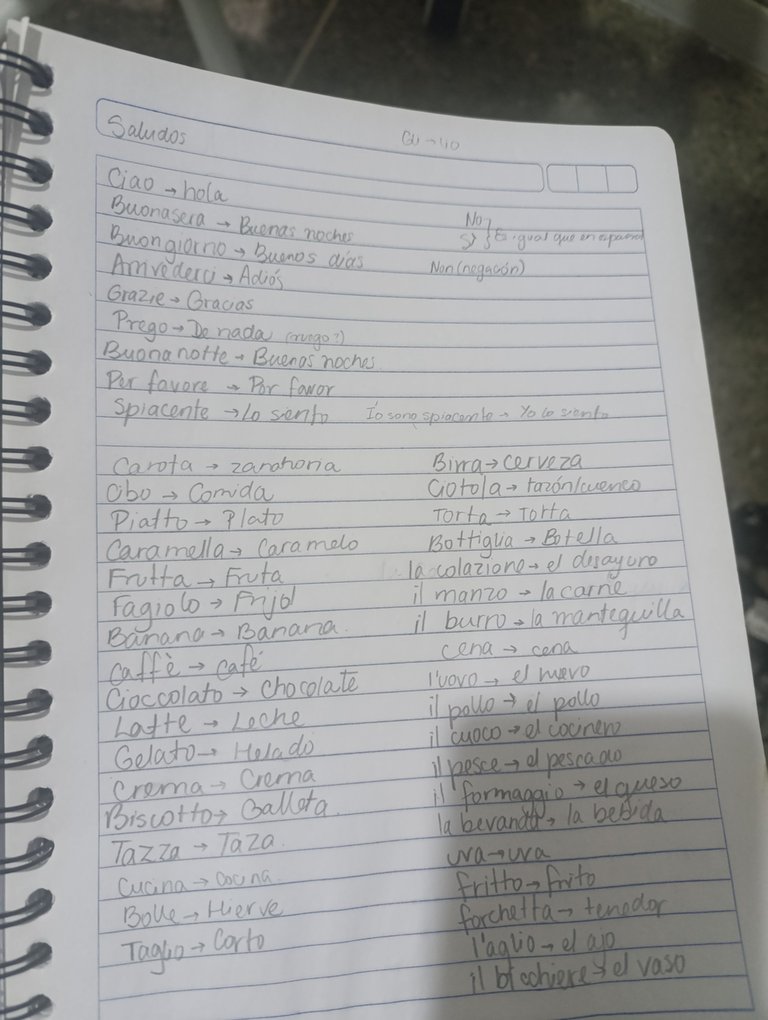 Saludos
Ciao → hola
Buonasera → Buenas noches
Buongiorno → Buenos días
Arrivederci → Adiós
Grazie → Gracias
Prego → De nada (ruego?)
Buona notte → Buenas noches
Per favore → Por favor
Spiacente → Lo siento
Io sono spiacente → Yo lo siento
No
Sì } Es igual que en español
Non (negación)
Carota → zanahoria
Cibo → Comida
Piatto → Plato
Caramella → Caramelo
Frutta → Fruta
Fagiolo → Frijol
Banana → Banana
Caffè → café
Cioccolato → Chocolate
Latte → Leche
Gelato → Helado
Crema → Crema
Biscotto → Galleta
Tazza → Taza
Cucina → Cocina
Bolle → Hierve
Taglio → Corto
Birra → cerveza
Ciotola → tazón/cuenco
Torta → Torta
Bottiglia → Botella
la colazione → el desayuno
il manzo → la carne
il burro → la mantequilla
cena → cena
l'uovo → el huevo
il pollo → el pollo
il cuoco → el cocinero
il pesce → el pescado
il formaggio → el queso
la bevanda → la bebida
uva → uva
fritto → frito
forchetta → tenedor
l'aglio → el ajo
il bicchiere → el vaso